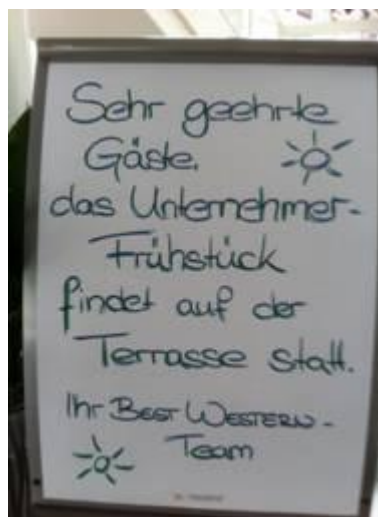 Sehr geehrte
Gäste,
das Unternehmer-
Frühstück
findet auf der
Terrasse statt.
Ihr BEST WESTERN-
Team